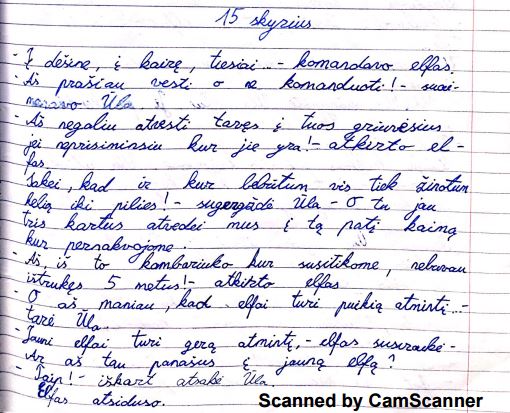 15 skyrius
- Į dešinę, į kairę, tiesiai...- komandavo elfas.
- Aš prašiau vesti o ne komanduoti!- suai-
menavo Ūla.
- Aš negaliu atvesti tavęs į tuos griuvėsius
jei neprisiminsiu kur jie yra!- atkirto el-
fas.
Sakei, kad ir kur bebūtum vis tiek žinotum
kelią iki pilies!- sugergždė Ūla - O tu jau
tris kartus atvedei mus į tą patį kaimą
kur pernakvojome.
- Aš, iš to kambariuko kur susitikome, nebuvau
ištrukęs 5 metus!- atkirto elfas
- O aš maniau, kad elfai turi puikią atmintį...-
tarė Ūla.
- Jauni elfai turi gerą atmintį,- elfas susiraukė -
Ar aš tau panašus į jauną elfą?
- Taip!- iškart atsakė Ūla.
Elfas atsiduso.
Scanned by CamScanner